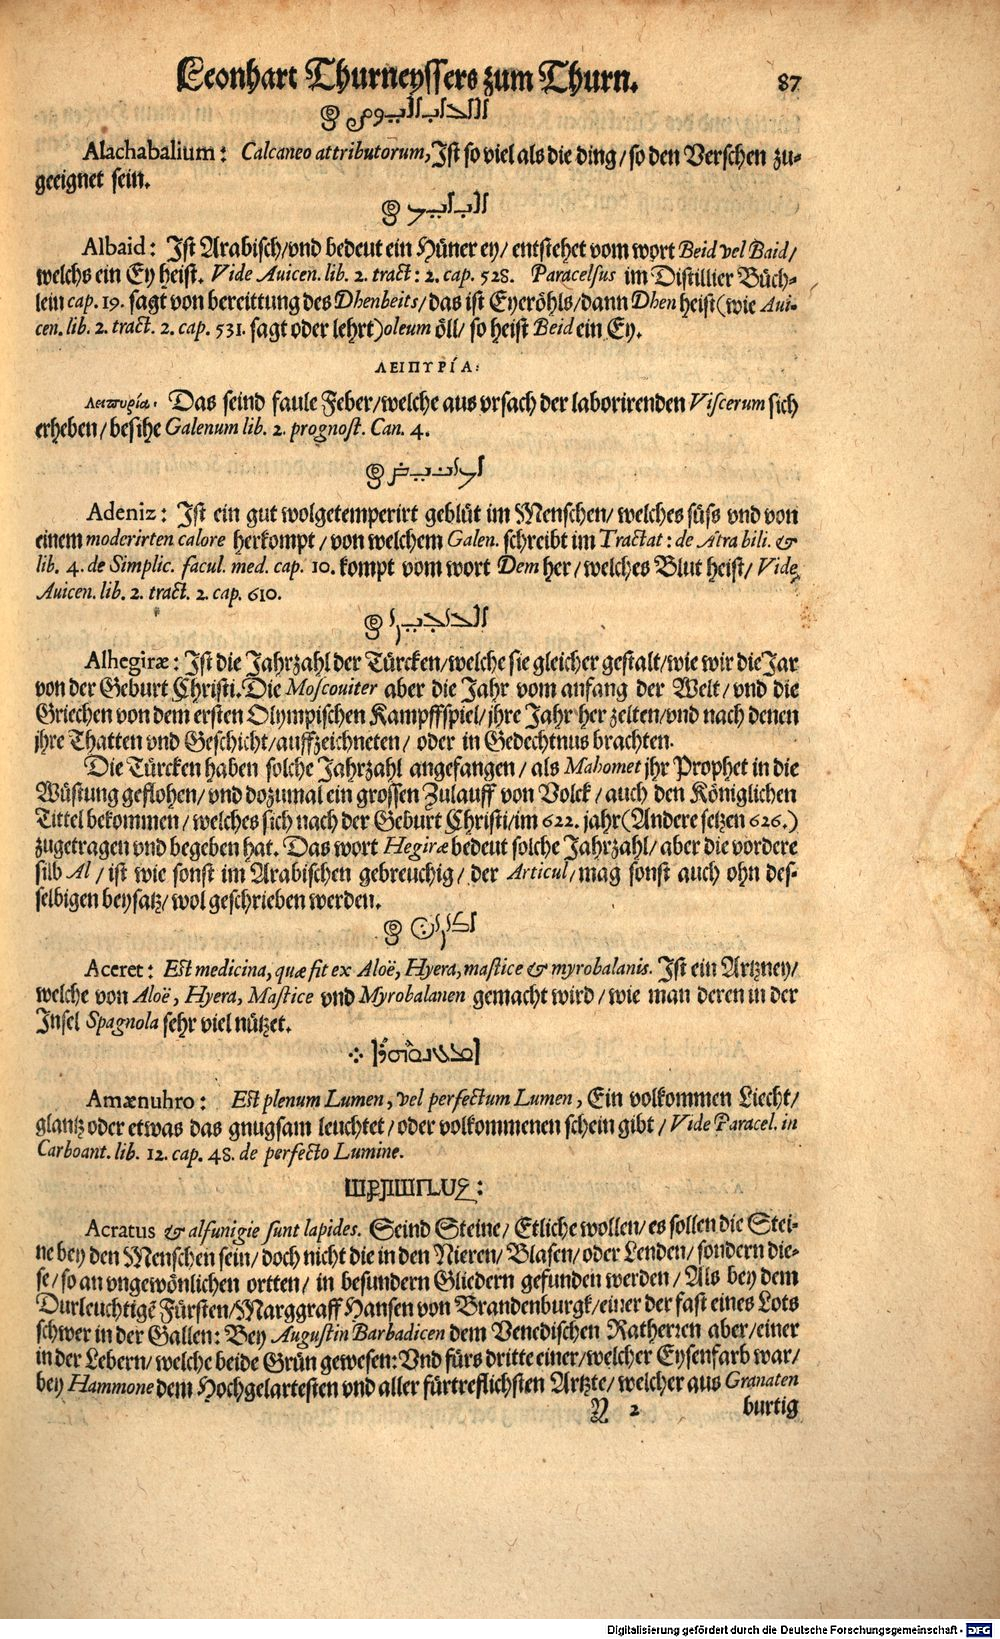 Leonhart Thurneyssers zum Thurn. 87
Alachabalium: Calcaneo attributorum, Ist so viel als die ding/ so den Verschen zu-
geeignet sein.
Albaid: Ist Arabisch/vnd bedeut ein Hüner ey/ entstehet vom wort Beid vel Baid/
welchs ein Ey heist. Vide Auicen. lib. 2. tract: 2. cap. 528. Paracelsus im Distillier Büch-
lein cap. 19. sagt von bereittung des Dhenbeits/das ist Eyeröhls/dann Dhen heist (wie Aui-
cen. lib. 2. tract. 2. cap. 531. sagt oder lehrt) oleum öll/ so heist Beid ein Ey.
ΛΕΙΠΥΡΊΑ:
Λειπυρία. Das seind faule Feber/welche aus vrsach der laborirenden Viscerum sich
erheben/ besihe Galenum lib. 2. prognost. Can. 4.
Adeniz: Ist ein gut wolgetemperirt geblüt im Menschen/ welches süss vnd von
einem moderirten calore herkompt/ von welchem Galen. schreibt im Tractat: de Atra bili. &
lib. 4. de Simplic. facul. med. cap. 10. kompt vom wort Dem her/ welches Blut heist/ Vide
Auicen. lib. 2. tract. 2. cap. 610.
Alhegiræ: Ist die Jahrzahl der Türcken/welche sie gleicher gestalt/wie wir die Jar
von der Geburt Christi. Die Moscouiter aber die Jahr vom anfang der Welt/ vnd die
Griechen von dem ersten Olympischen Kampffspiel/ jhre Jahr her zelten/vnd nach denen
jhre Thatten vnd Geschicht/auffzeichneten/ oder in Gedechtnus brachten.
Die Türcken haben solche Jahrzahl angefangen/ als Mahomet jhr Prophet in die
Wüstung geflohen/ vnd dozumal ein grossen Zulauff von Volck/ auch den Königlichen
Tittel bekommen/ welches sich nach der Geburt Christi/im 622. jahr (Andere setzen 626.)
zugetragen vnd begeben hat. Das wort Hegiræ bedeut solche Jahrzahl/ aber die vordere
silb Al/ ist wie sonst im Arabischen gebreuchig/ der Articul/ mag sonst auch ohn des-
selbigen beysatz/ wol geschrieben werden.
Aceret: Est medicina, quæ fit ex Aloë, Hyera, mastice & myrobalanis. Ist ein Artzney/
welche von Aloë, Hyera, Mastice vnd Myrobalanen gemacht wird/ wie man deren in der
Insel Spagnola sehr viel nützet.
Amænuhro: Est plenum Lumen, vel perfectum Lumen, Ein volkommen Liecht/
glantz oder etwas das gnugsam leuchtet/ oder volkommenen schein gibt/ Vide Paracel. in
Carboant. lib. 12. cap. 48. de perfecto Lumine.
Acratus & alfunigie sunt lapides. Seind Steine/ Etliche wollen/ es sollen die Stei-
ne bey den Menschen sein/ doch nicht die in den Nieren/ Blasen/ oder Lenden/ sondern die-
se/ so an vngewönlichen ortten/ in besundern Gliedern gefunden werden/ Als bey dem
Durleuchtigẽ Fürsten/Marggraff Hansen von Brandenburgk/einer der fast eines Lots
schwer in der Gallen: Bey Augustin Barbadicen dem Venedischen Ratherren aber/einer
in der Lebern/ welche beide Grün gewesen: Vnd fürs dritte einer/welcher Eysenfarb war/
bey Hammone dem Hochgelartesten vnd aller fürtreflichsten Artzte/ welcher aus Granaten
2 burtig
Digitalisierung gefördert durch die Deutsche Forschungsgemeinschaft - DFG